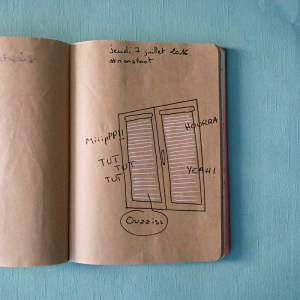 jeudi 7 juillet 2016
MilipPP!!
HOURRA
TUT
TUT
TUT
YEAH!
Ouzziss